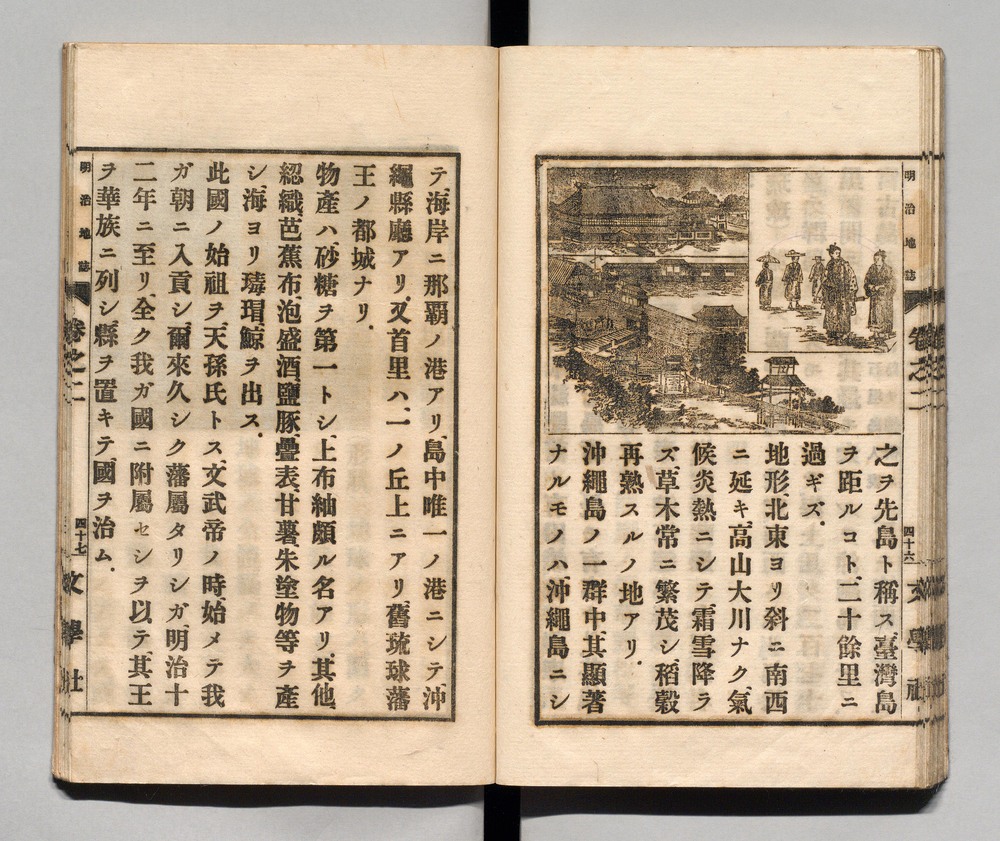 明治地誌
卷之二
四十六
文學社
之ヲ先島ト稱ス、臺灣島
ヲ距ルコト、二十餘里ニ
過ギズ.
地形、北東ヨリ斜ニ南西
ニ延キ、高山大川ナク、氣
候炎熱ニシテ霜雪降ラ
ズ、草木常ニ繁茂シ、稻穀
再熟スルノ地アリ.
沖繩島ノ一群中、其顯著
ナルモノハ、沖繩島ニシ
テ、海岸ニ那覇ノ港アリ、島中唯一ノ港ニシテ、沖
繩縣廳アリ、又首里ハ、一ノ丘上ニアリ、舊琉球藩
王ノ都城ナリ.
物產ハ、砂糖ヲ第一トシ、上布紬頗ル名アリ、其他、
綛織、芭蕉布、泡盛酒、鹽豚、疊表、甘薯、朱塗物等ヲ產
シ、海ヨリ瑇瑁鯨ヲ出ス.
此國ノ始祖ヲ、天孫氏トス、文武帝ノ時、始メテ我
ガ朝ニ入貢シ、爾來久シク藩屬タリシガ、明治十
二年ニ至リ、全ク我ガ國ニ附屬セシヲ以テ、其王
ヲ華族ニ列シ、縣ヲ置キテ國ヲ治ム.
明治地誌
卷之二
四十七
文學社